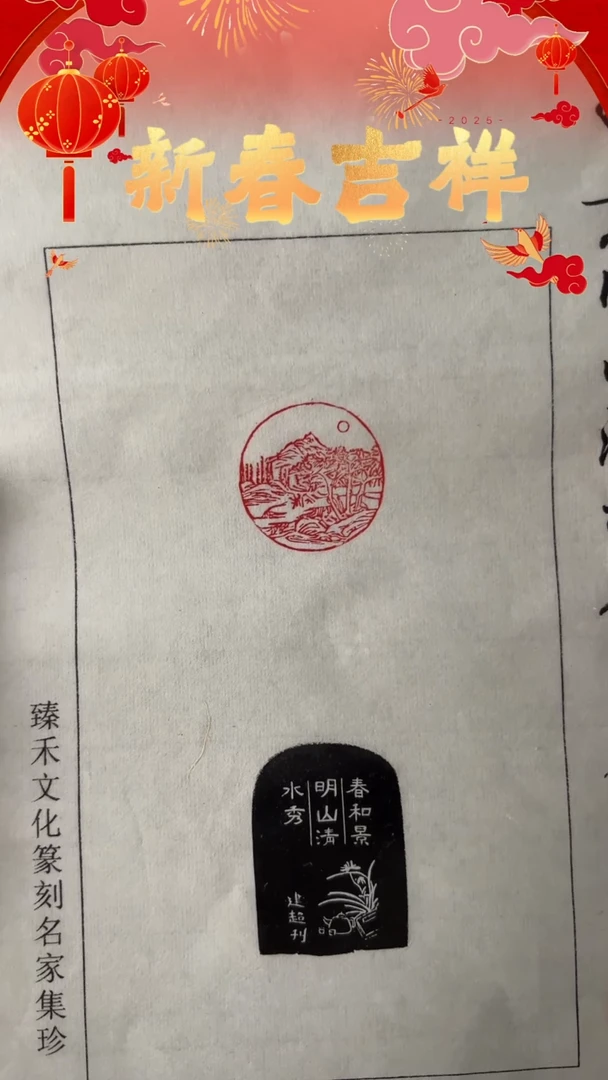 -2025-
新春吉祥
春和景
明山清
水秀
建超刊
臻禾文化篆刻名家集珍